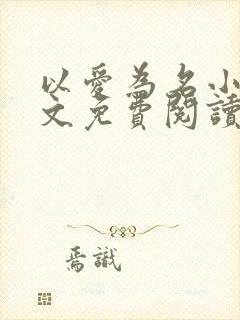 以愛為名小
文免費閱讀
焉識